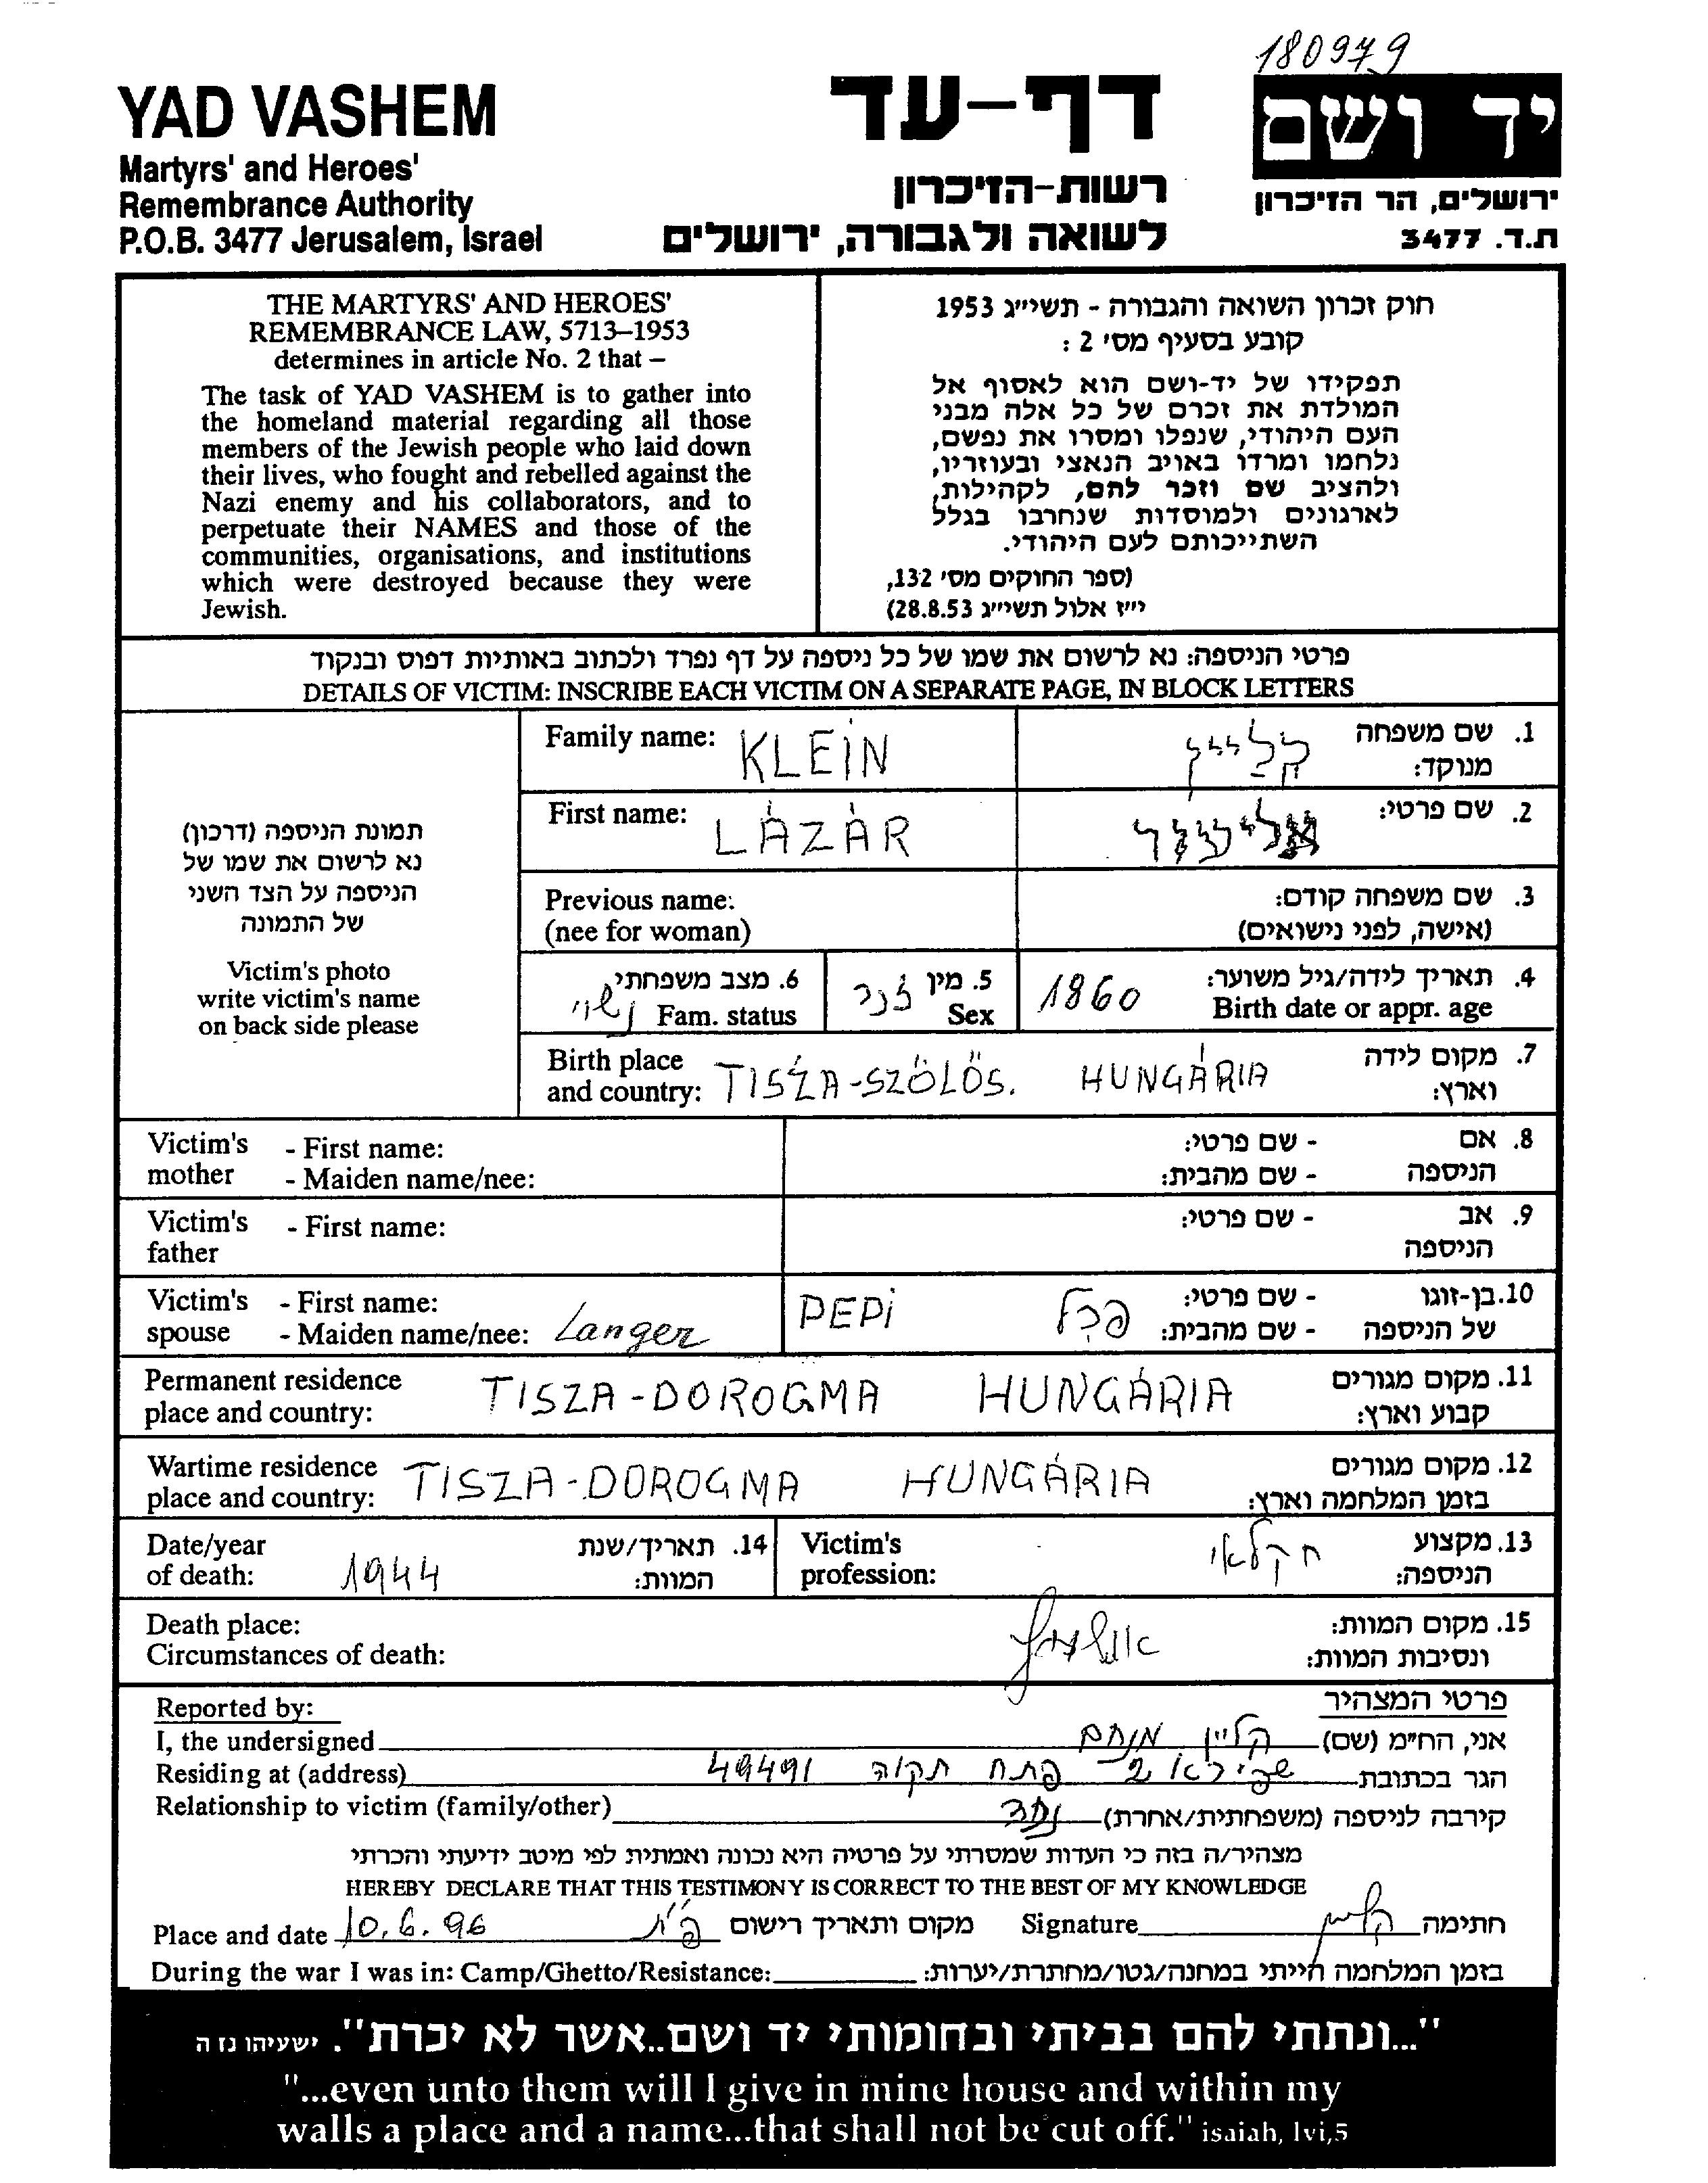 180979
YAD VASHEM
Martyrs' and Heroes'
Remembrance Authority
P.O.B. 3477 Jerusalem, Israel
דף-עד
רשות-הזיכרון
לשואה ולגבורה, ירושלים
יד ושם
ירושלים, הר הזיכרון
ת.ד. 3477
THE MARTYRS' AND HEROES'
REMEMBRANCE LAW, 5713–1953
determines in article No. 2 that –
The task of YAD VASHEM is to gather into
the homeland material regarding all those
members of the Jewish people who laid down
their lives, who fought and rebelled against the
Nazi enemy and his collaborators, and to
perpetuate their NAMES and those of the
communities, organisations, and institutions
which were destroyed because they were
Jewish.
חוק זכרון השואה והגבורה - תשי״ג 1953
קובע בסעיף מס׳ 2 :
תפקידו של יד-ושם הוא לאסוף אל
המולדת את זכרם של כל אלה מבני
העם היהודי, שנפלו ומסרו את נפשם,
נלחמו ומרדו באויב הנאצי ובעוזריו,
ולהציב שם וזכר להם, לקהילות,
לארגונים ולמוסדות שנחרבו בגלל
השתייכותם לעם היהודי.
(ספר החוקים מס׳ 132,
י״ז אלול תשי״ג 28.8.53)
פרטי הניספה: נא לרשום את שמו של כל ניספה על דף נפרד ולכתוב באותיות דפוס ובנקוד
DETAILS OF VICTIM: INSCRIBE EACH VICTIM ON A SEPARATE PAGE, IN BLOCK LETTERS
תמונת הניספה (דרכון)
נא לרשום את שמו של
הניספה על הצד השני
של התמונה
Victim's photo
write victim's name
on back side please
Family name: KLEIN קליין 1. שם משפחה
מנוקד:
First name: LÁZÁR אליעזר 2. שם פרטי:
Previous name: 3. שם משפחה קודם:
(nee for woman) (אישה, לפני נישואים)
6. מצב משפחתי נשוי Fam. status
5. מין זכר Sex
1860 4. תאריך לידה/גיל משוער:
Birth date or appr. age
Birth place 7. מקום לידה
and country: TISZA-SZÖLÖS. HUNGÁRIA וארץ:
Victim's - First name: - שם פרטי: 8. אם
mother - Maiden name/nee: - שם מהבית: הניספה
Victim's - First name: - שם פרטי: 9. אב
father הניספה
Victim's - First name: PEPI - שם פרטי: 10. בן-זוגו
spouse - Maiden name/nee: Langer - שם מהבית: של הניספה
Permanent residence TISZA-DOROGMA HUNGÁRIA 11. מקום מגורים
place and country: קבוע וארץ:
Wartime residence TISZA-DOROGMA HUNGÁRIA 12. מקום מגורים
place and country: בזמן המלחמה וארץ:
Date/year 14. תאריך/שנת
of death: 1944 המוות:
Victim's חקלאי 13. מקצוע
profession: הניספה:
Death place: אושוויץ 15. מקום המוות:
Circumstances of death: ונסיבות המוות:
Reported by: פרטי המצהיר
I, the undersigned קליין מנחם אני, הח״מ (שם)
Residing at (address) שפירא 2 פתח תקוה 49491 הגר בכתובת
Relationship to victim (family/other) נכד קירבה לניספה (משפחתית/אחרת)
מצהיר/ה בזה כי העדות שמסרתי על פרטיה היא נכונה ואמתית לפי מיטב ידיעתי והכרתי
HEREBY DECLARE THAT THIS TESTIMONY IS CORRECT TO THE BEST OF MY KNOWLEDGE
Place and date 10.6.96 פ״ת מקום ותאריך רישום Signature קליין חתימה
During the war I was in: Camp/Ghetto/Resistance: בזמן המלחמה הייתי במחנה/גטו/מחתרת/יערות:
"...ונתתי להם בביתי ובחומותי יד ושם..אשר לא יכרת". ישעיהו נז ה
"...even unto them will I give in mine house and within my
walls a place and a name...that shall not be cut off." isaiah, lvi,5